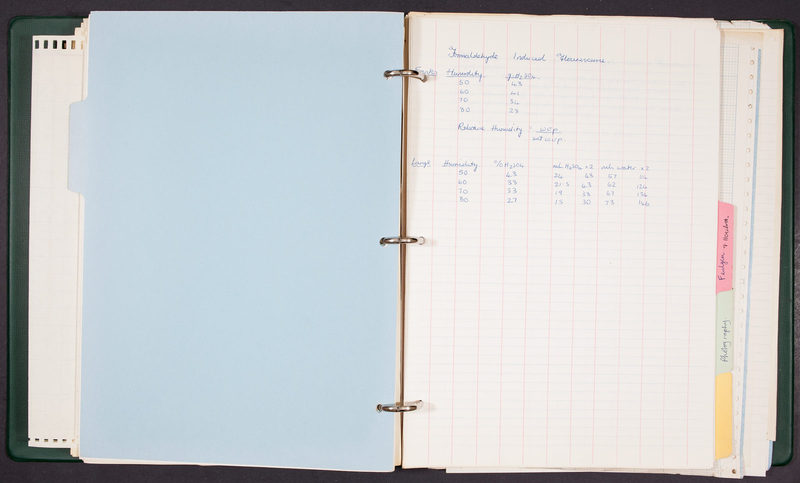 Formaldehyde Induced Fluorescence.
Humidity g. H₂SO₄
50 43
60
70 34
80 23
Relative Humidity = w.v.p.
sat w.v.p.
Lange Humidity % H₂SO₄ mls H₂SO₄ x2 mls water x2
50 43 24 48 57 114
60 38 21.5 43 62 124
70 33 19 38 67 134
80 27 15 30 73 146
Feulgen &
Photography